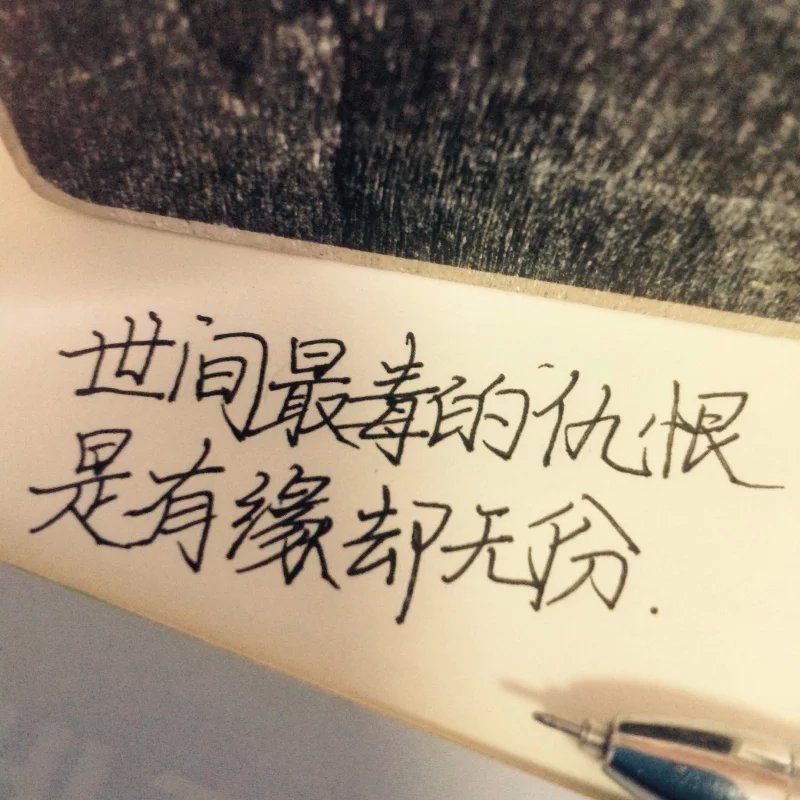 世间最毒的仇恨
是有缘却无份.